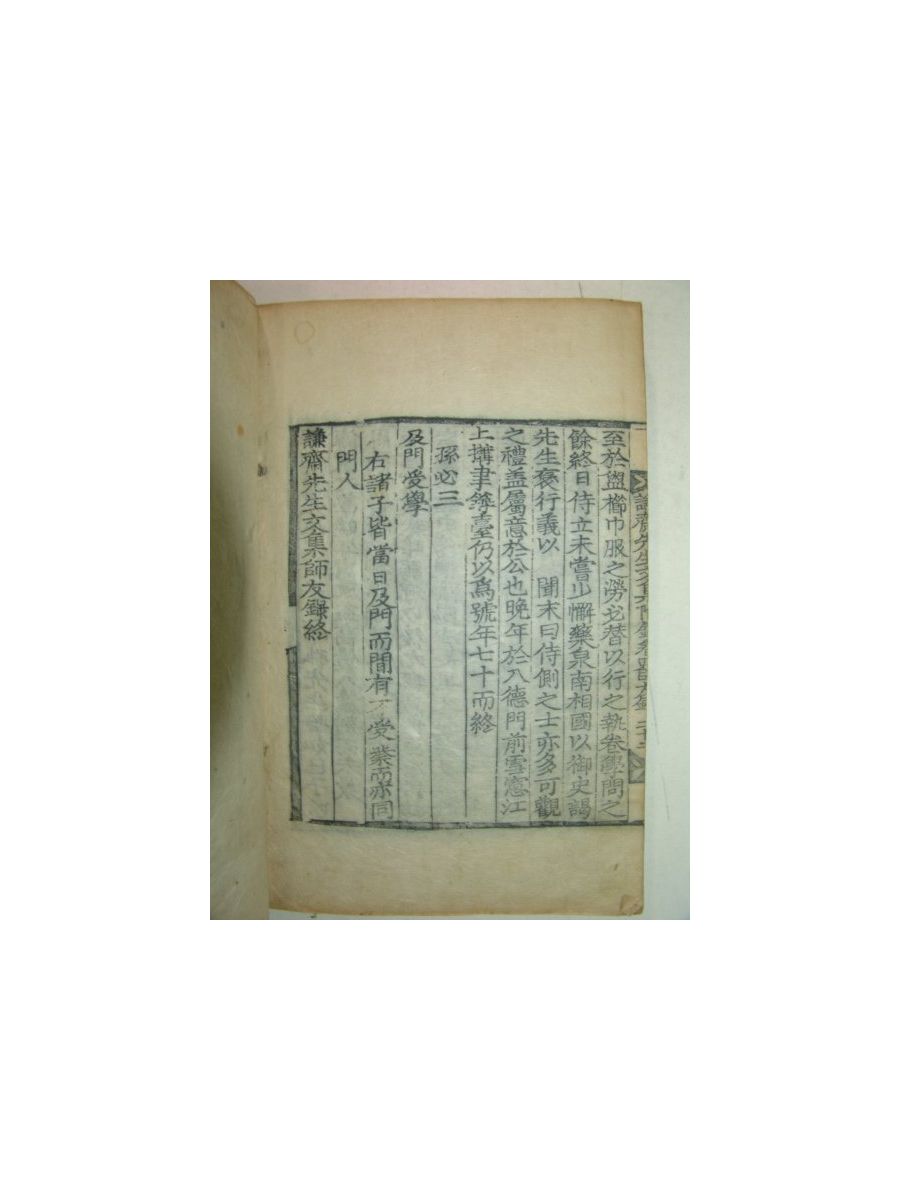 謙齋先生文集附錄卷
至於盥櫛巾服之勞必替以行之執卷學問之
餘終日侍立未嘗少懈藥泉南相國以御史謁
先生褒行義以 聞末曰侍側之士亦多可觀
之禮盖屬意於公也晚年於入德門前雪窓江
上搆聿簿臺仍以爲號年七十而終
孫必三
及門受學
右諸子皆當日及門而間有 受業而亦同
門人
謙齋先生文集師友錄終